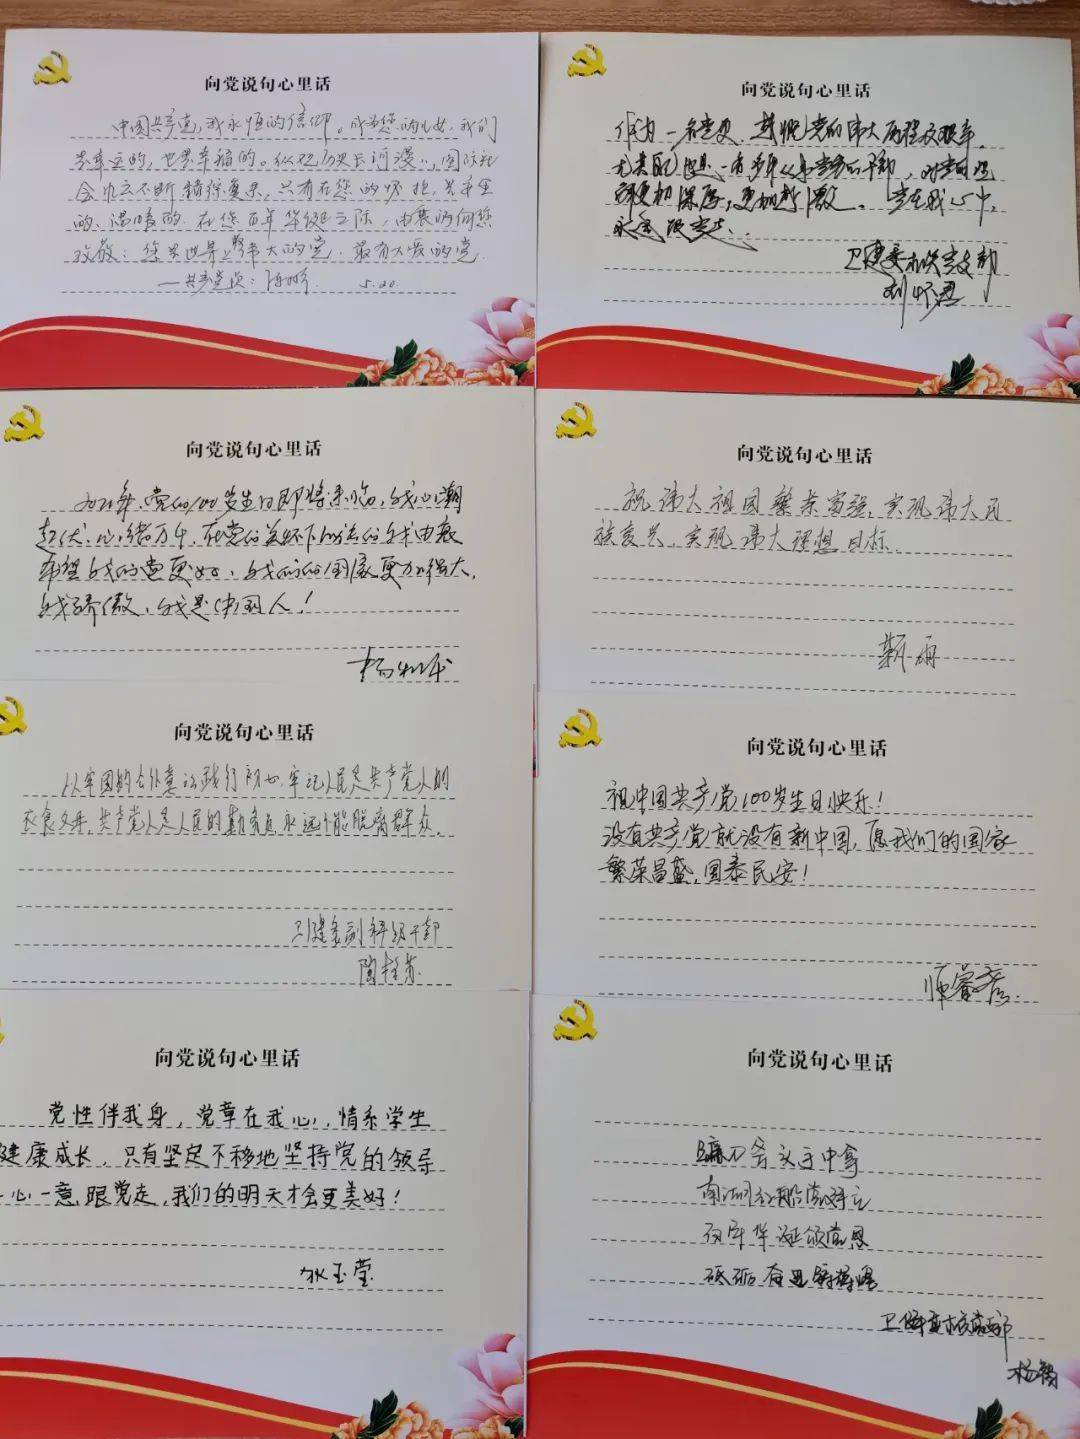 向党说句心里话
中国共产党,我永恒的信仰。成为您的儿女,我们
是幸运的,也是幸福的。纵观历史长河漫漫,国际社
会 不断 ,只有在您的怀抱,是安全
的、温暖的。在您百年华诞之际,由衷的向您
致敬:您是世界上最伟大的党,最有大爱的党。
—共产党员: 5.20
向党说句心里话
作为一名党员, 党的伟大历程
党在我心中,
永远跟党走。
卫健委机关党支部
向党说句心里话
2021年,党的100岁生日即将来临,我心潮
起伏,心绪万千,在党的关怀下 的我由衷
希望我的党更好、我们的国家更加强大,
我骄傲,我是中国人!
向党说句心里话
祝伟大祖国繁荣富强,实现伟大民
族复兴,实现伟大理想目标。
靳雨
向党说句心里话
以牢固的 意识践行初心,牢记人民是共产党人的
衣食父母,共产党人是人民的勤务员,永远不能脱离群众。
卫健委副科级干部
向党说句心里话
祖中国共产党100岁生日快乐!
没有共产党就没有新中国,愿我们的国家
繁荣昌盛,国泰民安!
师睿彦
向党说句心里话
党性伴我身,党章在我心,情系学生
健康成长,只有坚定不移地坚持党的领导
一心一意,跟党走,我们的明天才会更美好!
水玉莹
向党说句心里话
镰刀斧 手中拿
南湖红船
百年华诞颂党恩
砥砺奋进铸辉煌
卫健委机关党支部